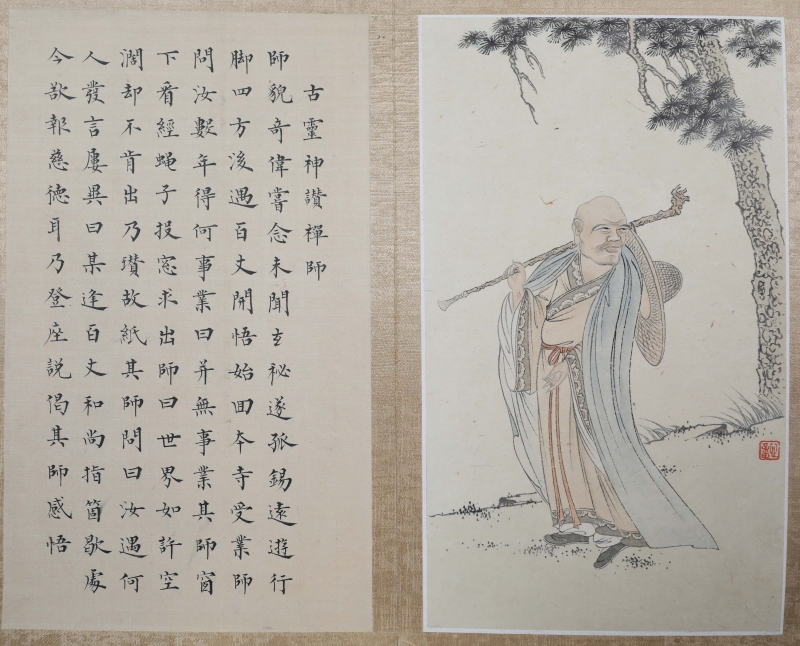 古靈神讃禪師
師貌奇偉嘗念未聞玄祕遂孤錫遠遊行
脚四方後遇百丈開悟始回本寺受業師
問汝數年得何事業曰并無事業其師窗
下看經蝇子投窓求出師曰世界如許空
濶却不肯出乃瓚故紙其師問曰汝遇何
人發言屢異曰某逢百丈和尚指箇歇處
今欲報慈德耳乃登座説偈其師感悟